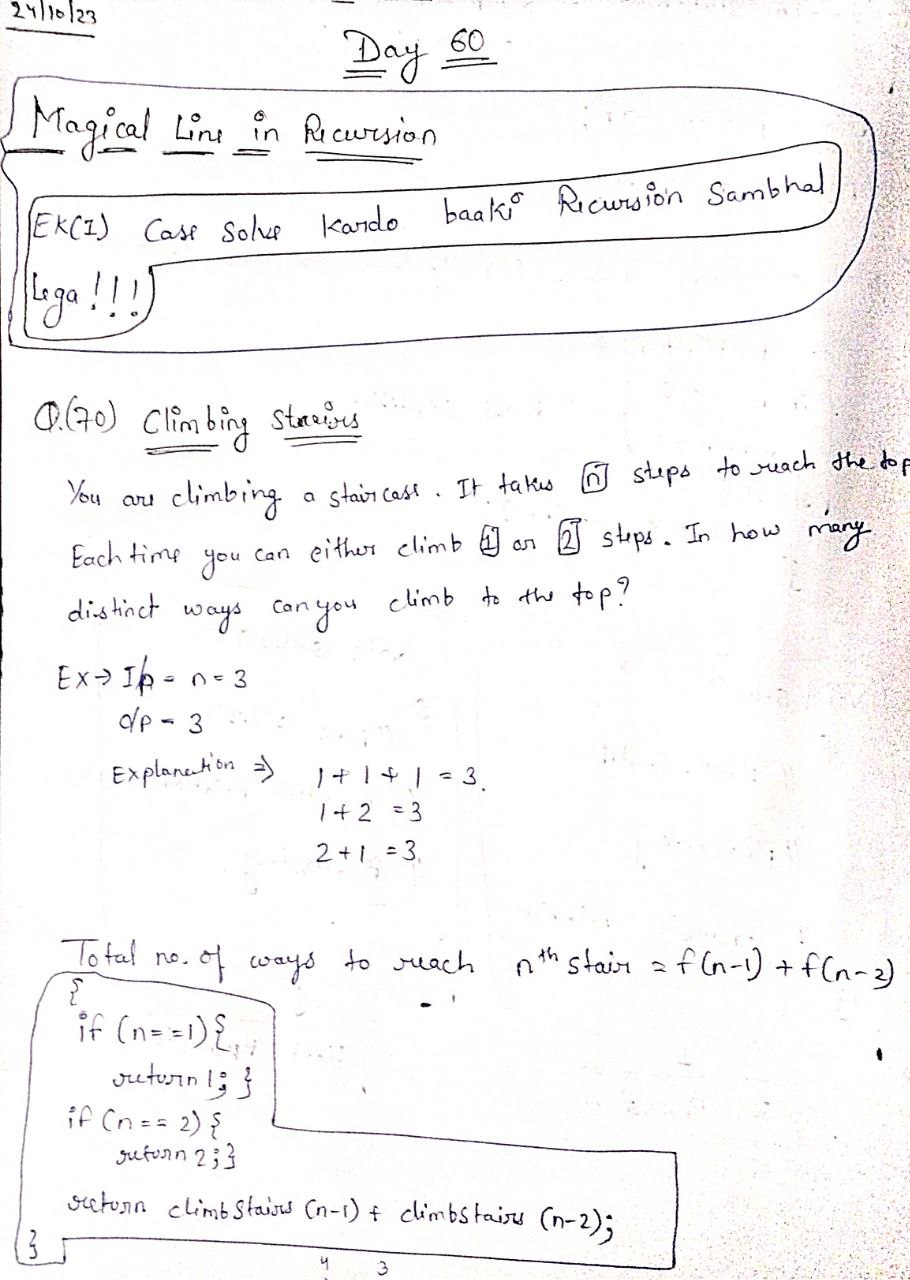 24/10/23
Day 60
Magical Line in Recursion
EK(1) Case Solve Kardo baaki Recursion Sambhal
Lega !!!
Q.(70) Climbing Staeirs
You are climbing a staircase. It takes n steps to reach the top
Each time you can either climb 1 or 2 steps. In how many
distinct ways can you climb to the top?
Ex → I/p = n = 3
O/p = 3
Explanation ⇒ 1 + 1 + 1 = 3.
1 + 2 = 3
2 + 1 = 3.
Total no. of ways to reach nth stair = f(n-1) + f(n-2)
{
if (n==1) {
return 1; }
if (n == 2) {
return 2; }
return climbStairs (n-1) + climbStairs (n-2);
}
4 3